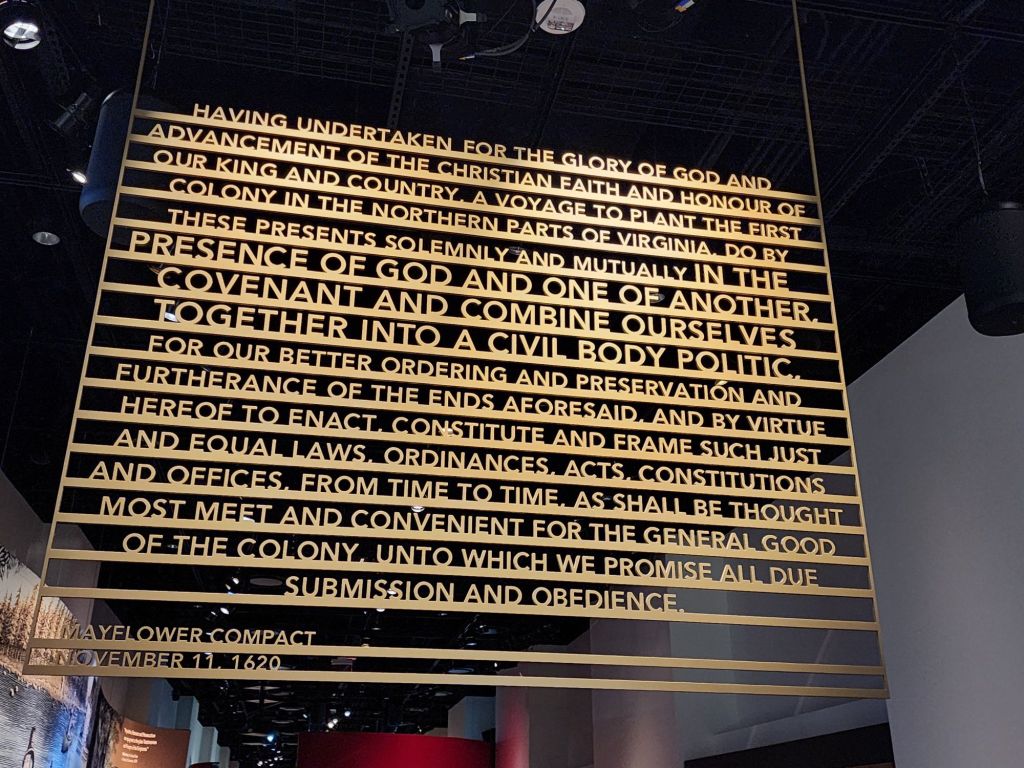 HAVING UNDERTAKEN FOR THE GLORY OF GOD AND
ADVANCEMENT OF THE CHRISTIAN FAITH AND HONOUR OF
OUR KING AND COUNTRY, A VOYAGE TO PLANT THE FIRST
COLONY IN THE NORTHERN PARTS OF VIRGINIA, DO BY
THESE PRESENTS SOLEMNLY AND MUTUALLY IN THE
PRESENCE OF GOD AND ONE OF ANOTHER,
COVENANT AND COMBINE OURSELVES
TOGETHER INTO A CIVIL BODY POLITIC,
FOR OUR BETTER ORDERING AND PRESERVATION AND
FURTHERANCE OF THE ENDS AFORESAID, AND BY VIRTUE
HEREOF TO ENACT, CONSTITUTE AND FRAME SUCH JUST
AND EQUAL LAWS, ORDINANCES, ACTS, CONSTITUTIONS
AND OFFICES, FROM TIME TO TIME, AS SHALL BE THOUGHT
MOST MEET AND CONVENIENT FOR THE GENERAL GOOD
OF THE COLONY, UNTO WHICH WE PROMISE ALL DUE
SUBMISSION AND OBEDIENCE.
MAYFLOWER COMPACT
NOVEMBER 11, 1620